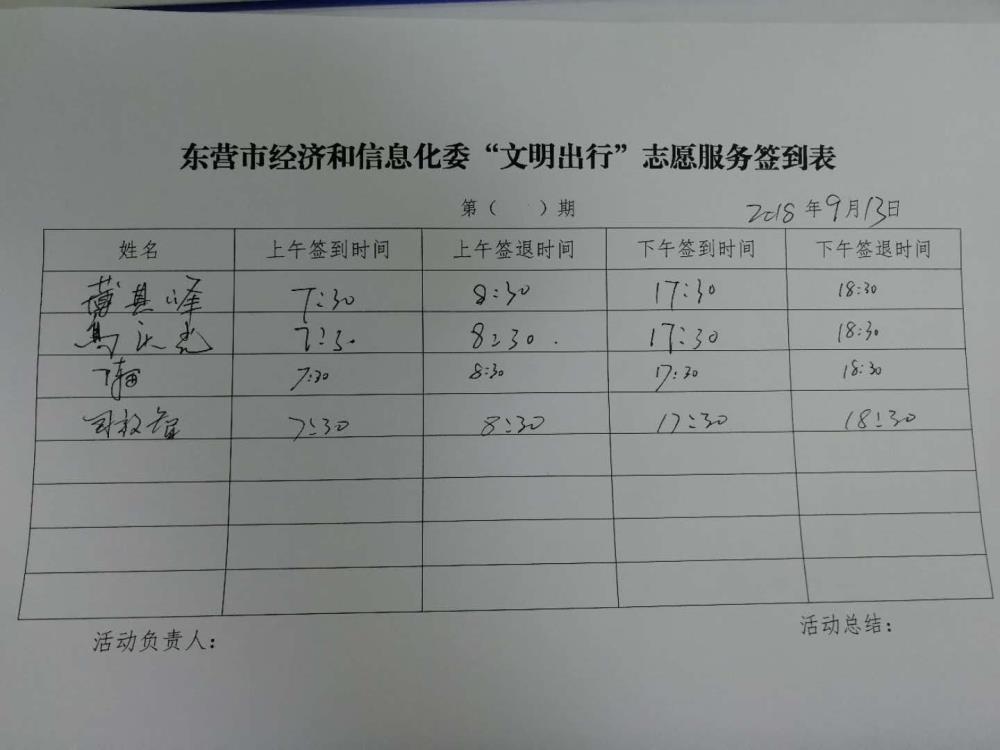 东营市经济和信息化委“文明出行”志愿服务签到表
第（ ）期 2018年9月13日
姓名 上午签到时间 上午签退时间 下午签到时间 下午签退时间
7:30 8:30 17:30 18:30
7:30 8:30. 17:30 18:30
7:30 8:30 17:30 18:30
7:30 8:30 17:30 18:30
活动负责人： 活动总结：